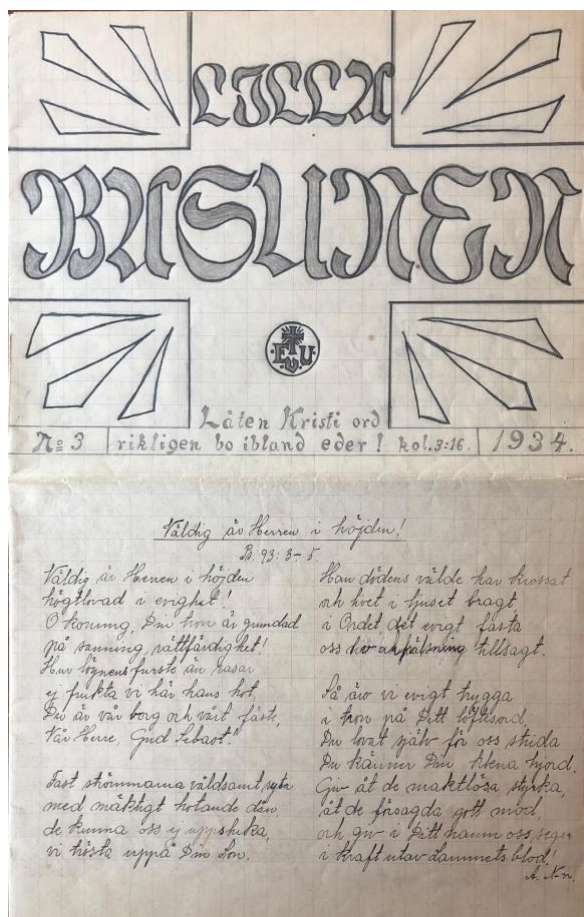 LILLA
BASUNEN
E U
V
Låten Kristi ord
No 3 rikligen bo ibland eder! kol. 3:16. 1934.
Väldig är Herren i höjden!
93: 3-5.
Väldig är Herren i höjden
högtlovad i evighet!
O konung, Din tron är grundad
på sanning, rättfärdighet!
Hur lögnens furste än rasar
ej frukta vi här hans hot,
Du är vår borg och vårt fäste,
Vår Herre, Gud Sebaot!
Fast strömmarna våldsamt ryta
med mäktigt hotande dån,
de kunna oss ej uppsluka,
vi trösta uppå Din Son.
Han dödens välde har krossat
och livet i ljuset bragt,
i Ordet det evigt fästa
oss tillsagt.
Så äro vi evigt trygga
i tron på Ditt löftesord,
Du lovat själv för oss strida
Du känner Din klena hjord.
Giv åt de maktlösa styrka,
åt de försagda gott mod,
och giv i Ditt namn oss seger
i kraft utav Lammets blod!
A. N-n.